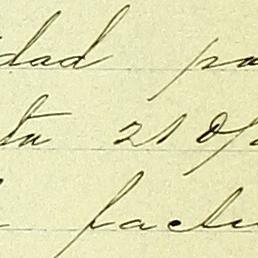 idad pa
ta 21 0/
factu